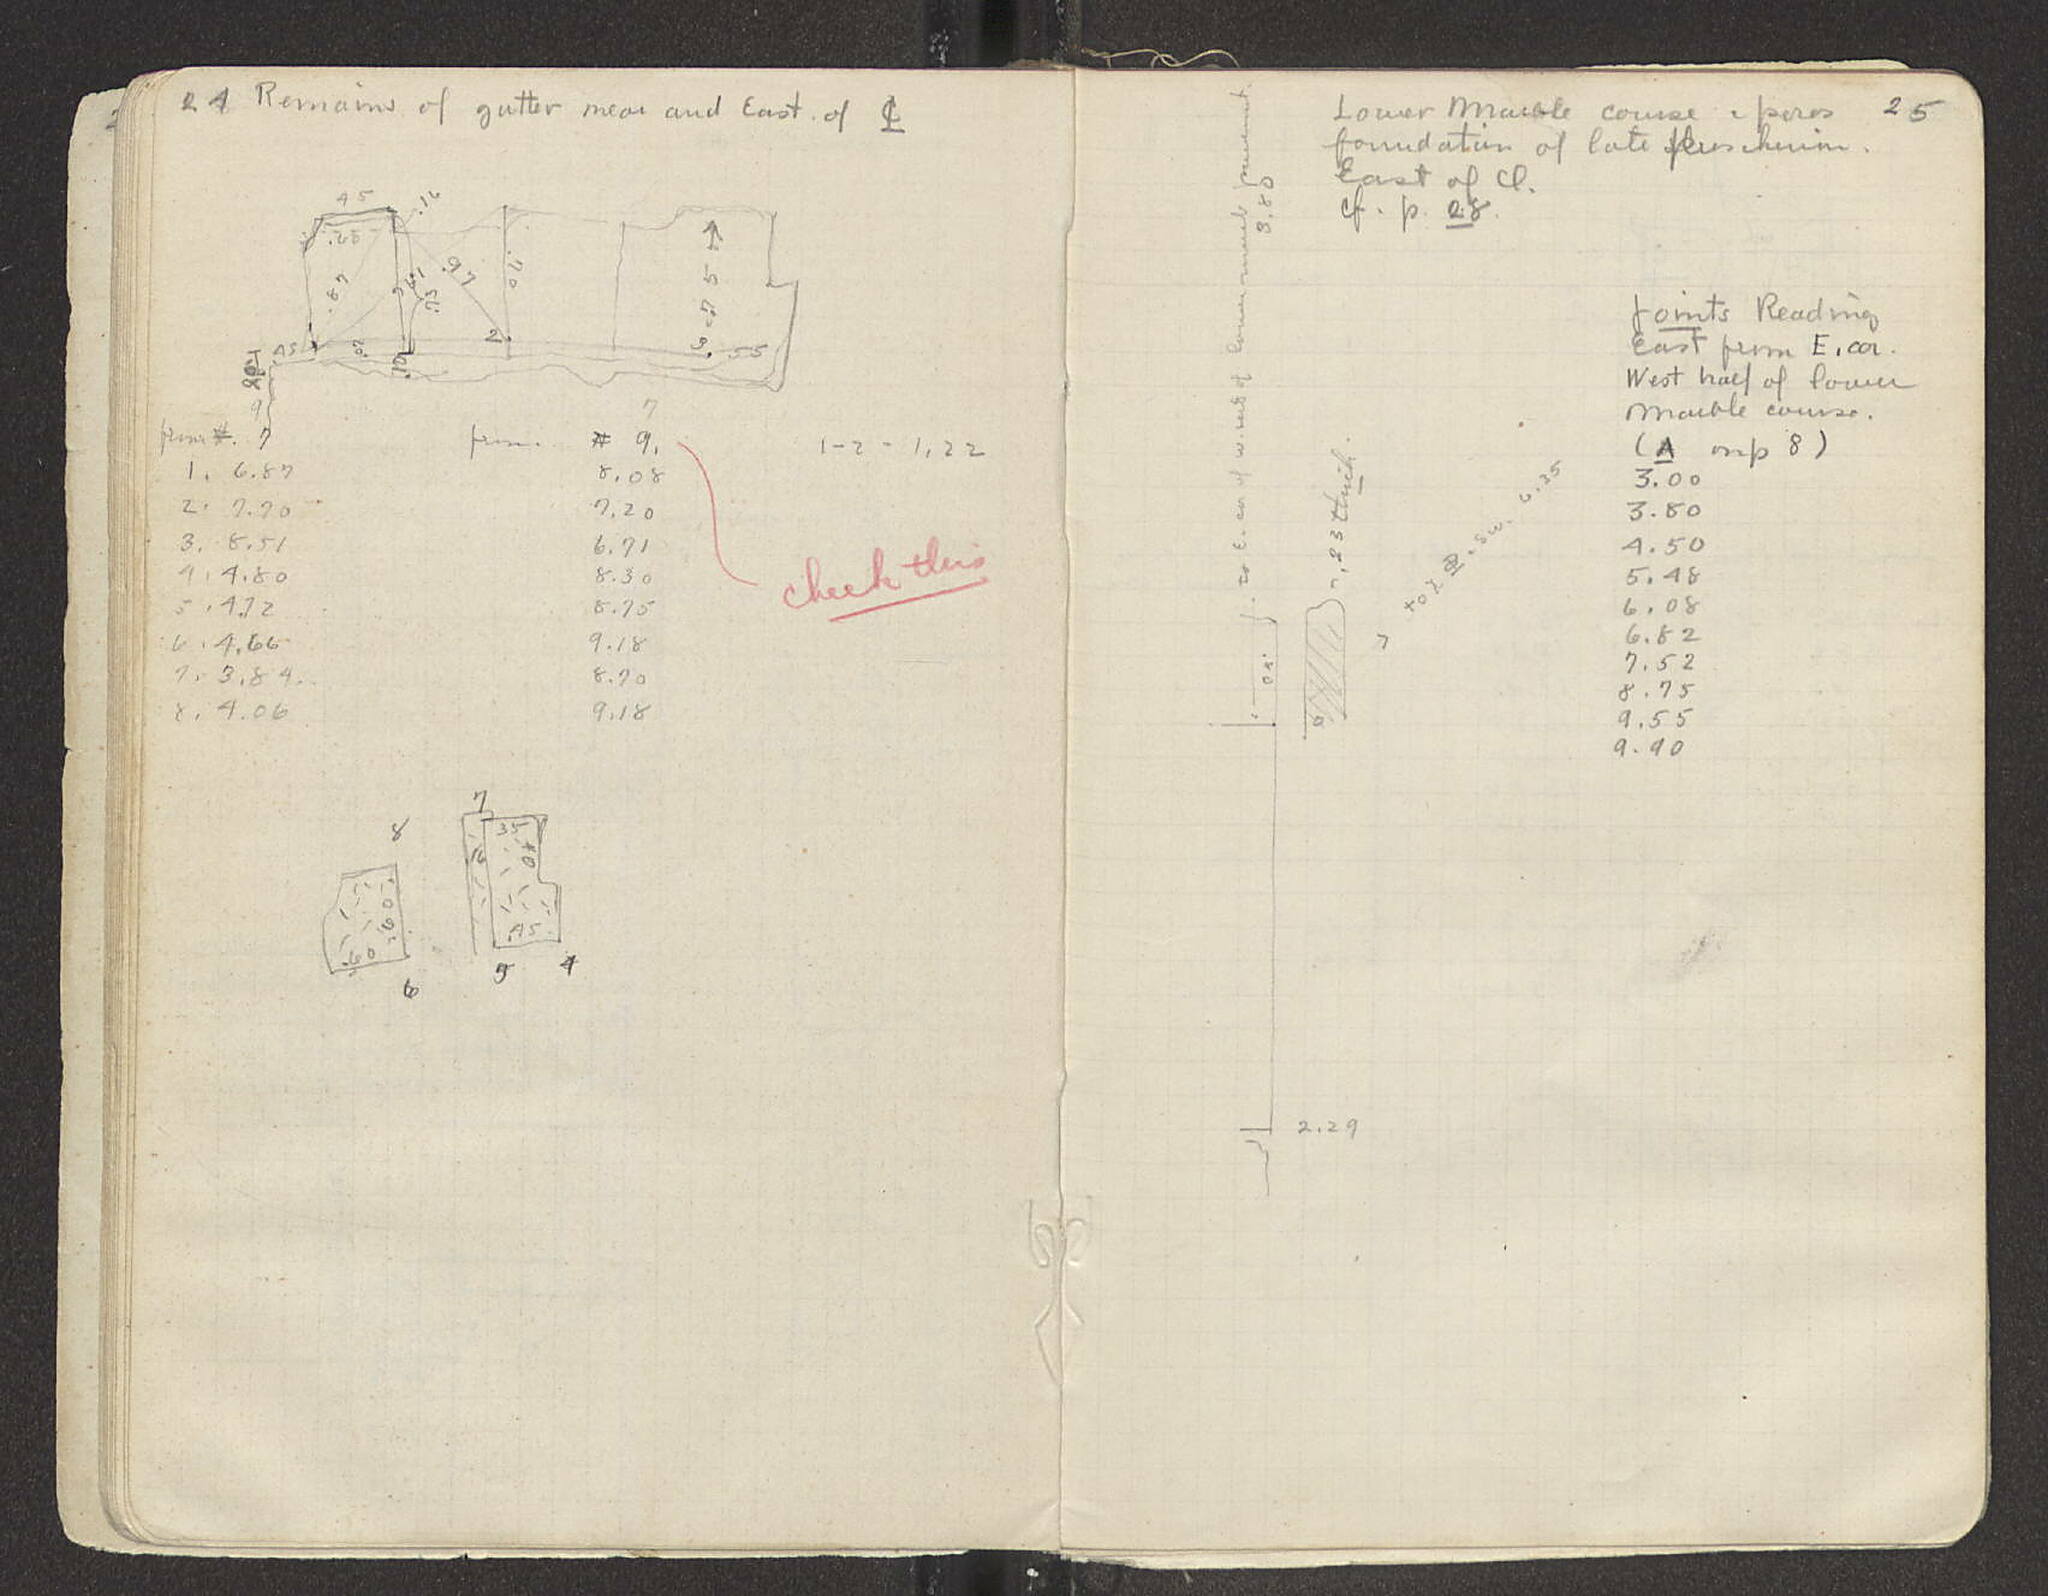 24 Remains of gutter near and East. of ℄
45
.16
.25
.87
.97
.70
.73
2.
3
.55
45
9
from #. 7
1. 6.87
2. 7.70
3. 8.51
4. 4.80
5. 4.72
6. 4.66
7. 3.84.
8. 4.06
7
from # 9.
8.08
7.20
6.71
8.30
8.75
9.18
8.70
9.18
1-2 - 1,22
check this
8
.60
.60
6
7
35
40
16
.45
5
4
Lower Marble course & poros 25
foundation of late proskenion.
East of ℄.
cf. p. 28.
3.80
.23 thick.
2.29
Joints Reading
East from E. cor.
West half of lower
Marble course.
(A on p 8)
3.00
3.80
4.50
5.48
6.08
6.82
7.52
8.75
9.55
9.90